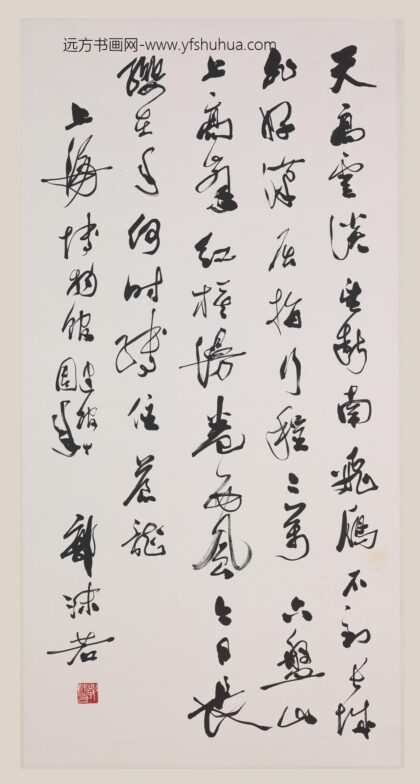 远方书画网-www.yfshuhua.com
天高雲淡望斷南飛鴈不到長城
非好漢屈指行程二萬 六盤山
上高峯紅旗漫卷西風今日長
纓在手何時縛住蒼龍
上海博物館建館十周年 郭沫若